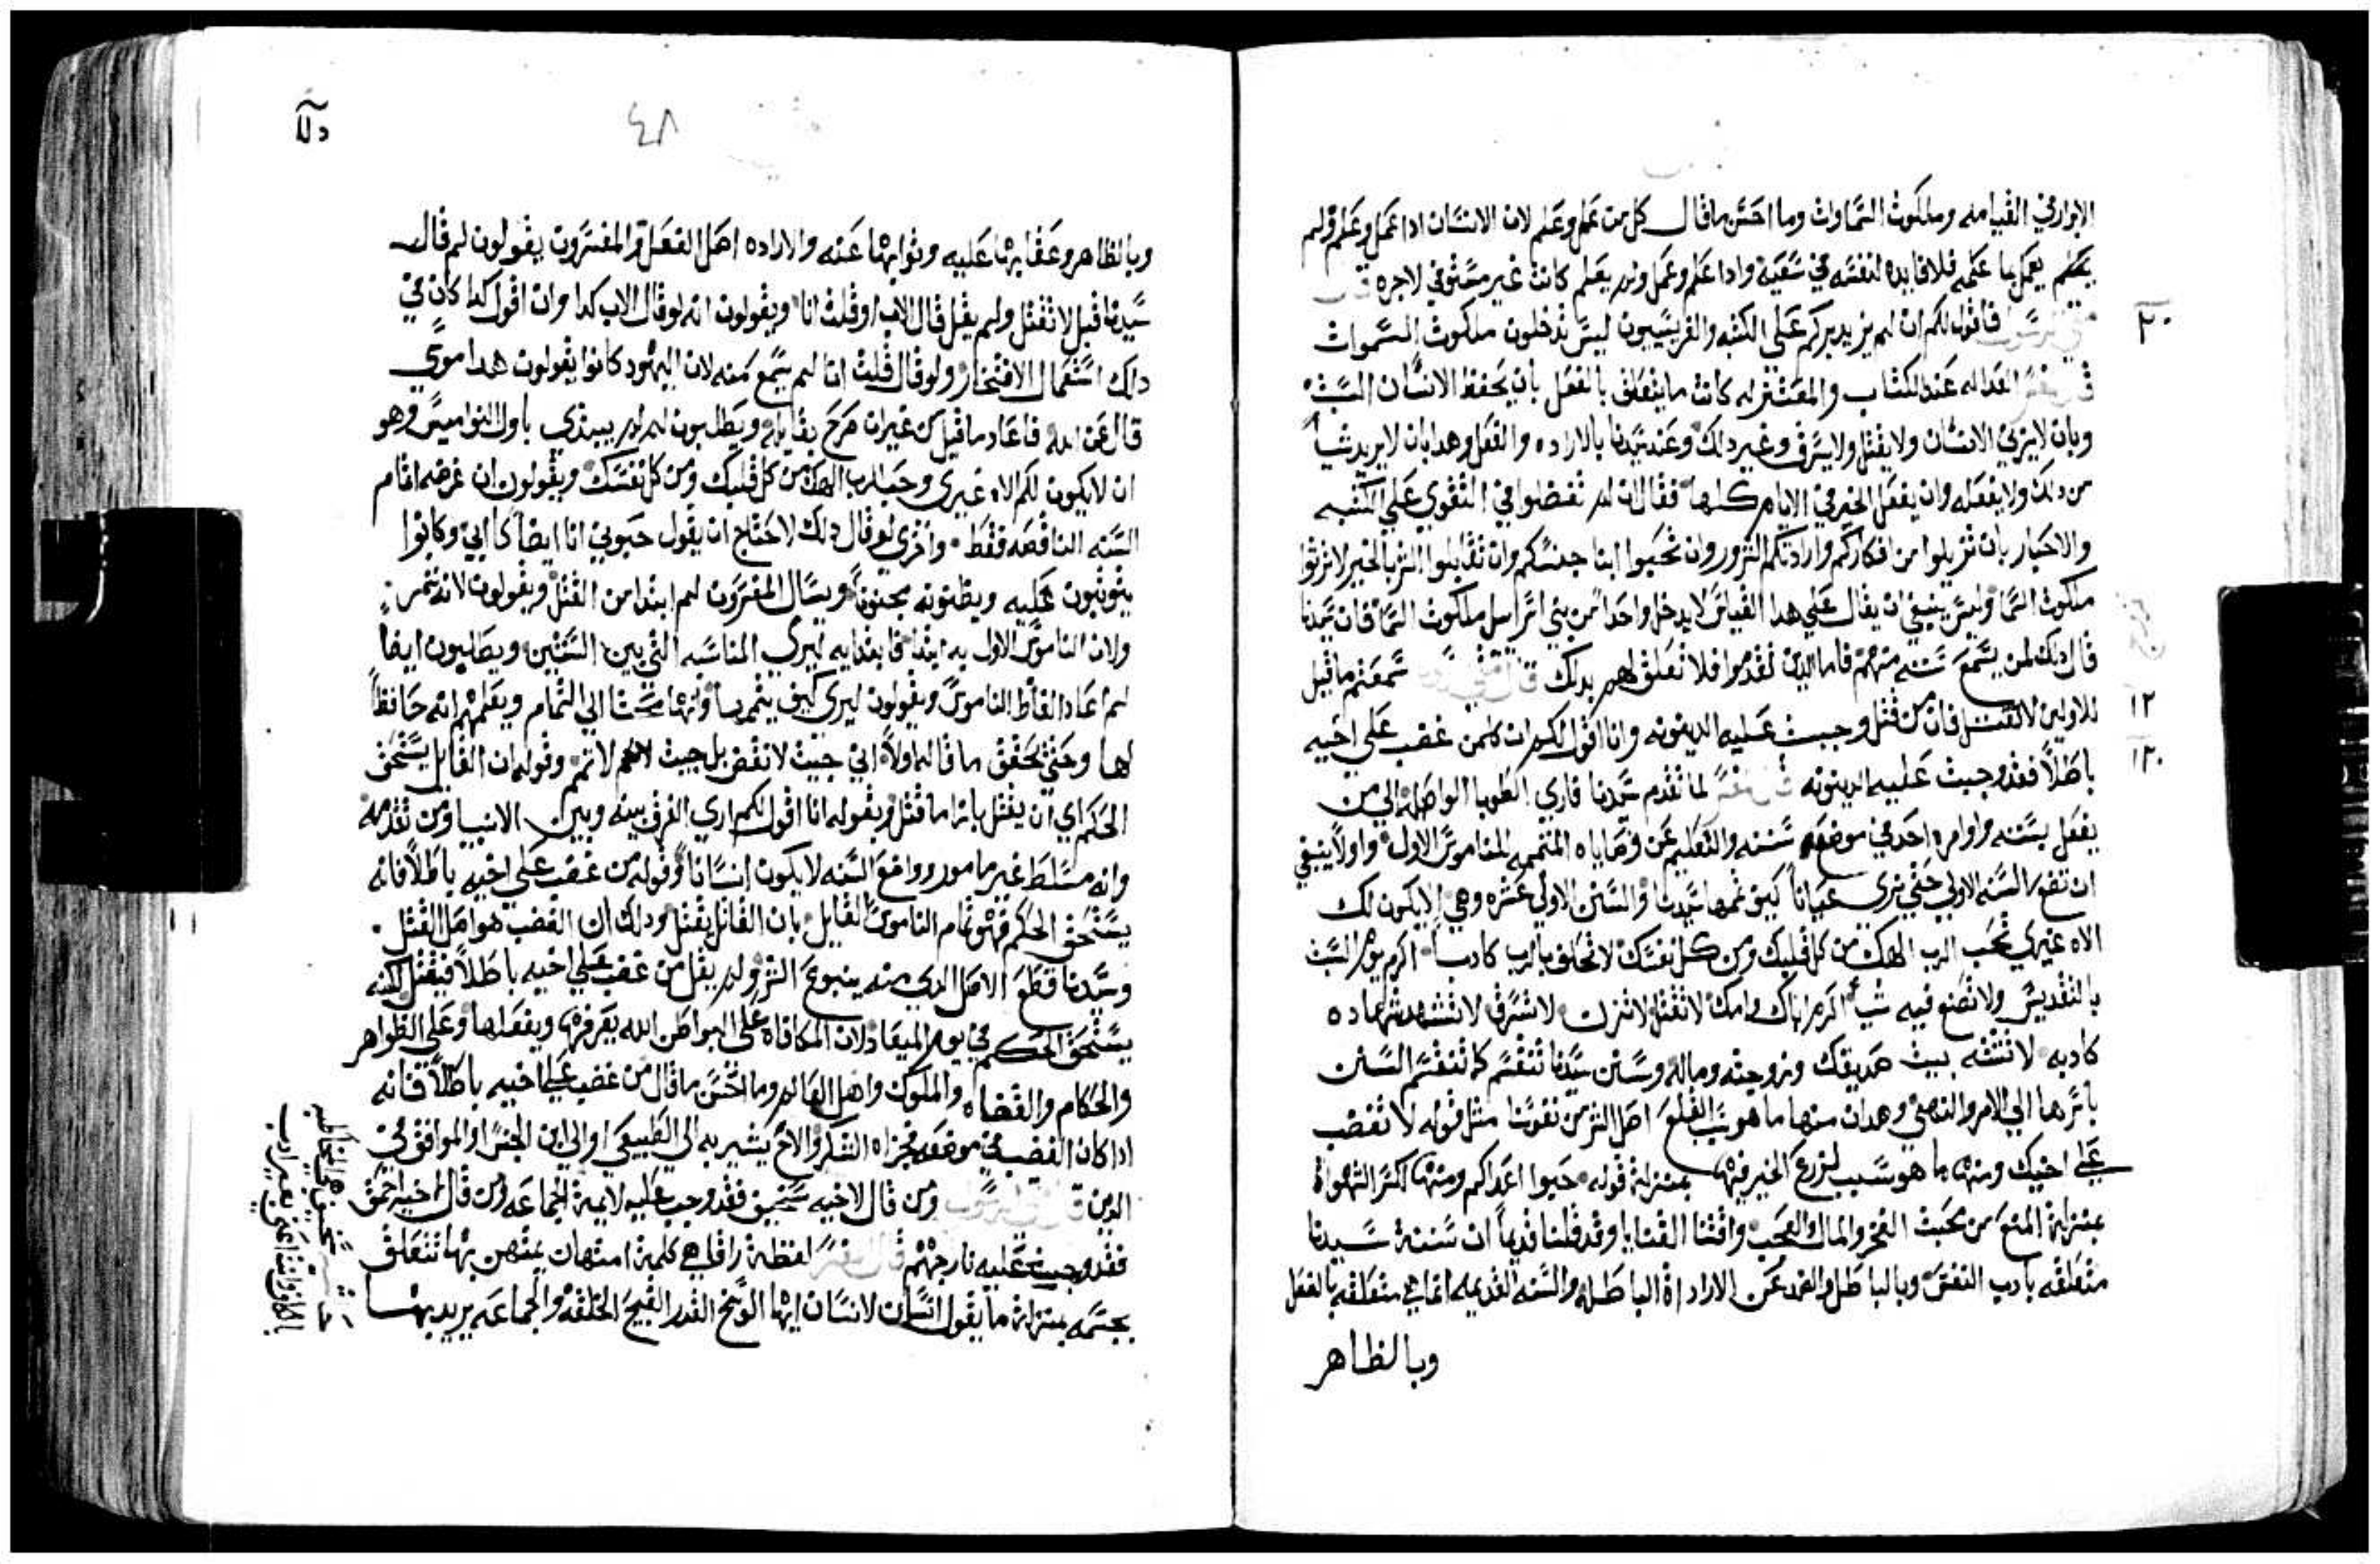 الابرار في القيامه وملكوت السماوات وما احسن ما قال كل من عمل وعلم لان الانسان ادا عمل وعلم ولم
يعمل بما علمه فلا فايده لنفسه في سعيه وادا علم وعمل ولم يعلم كانت غير مستوفي لاجره
فاقول لكم ان لم يزيد بركم علي الكتبه والفريسيين ليس تدخلون ملكوت السموات
العداله عند الكتاب والمعتزله كانت ما يتعلق بالفعل بان يحفظ الانسان السبت
وبان لا يزني الانسان ولا يقتل ولا يسرق وغير دلك وعند سيدنا بالاراده والفعل وهدا بان لا يريد شياً
من دلك ولا يفعله وان يفعل الخير في الايام كلها فقال ان لم تفضلوا في التقوي علي الكتبه
والاحبار بان تزيلوا من افكاركم وارادتكم الشرور وان تحبوا ابنا جنسكم وان تقابلوا الشر بالخير لا ترثوا
ملكوت السما وليس ينبغي ان يقال علي هدا القياس لا يدخل واحداً من بني اسراييل ملكوت السما فان سيدنا
قال دلك لمن يسمع سننه منهم فاما الدين تقدموا فلا تعلق لهم بدلك سمعتم ما قيل
للاولين لا تقتل فان من قتل وجبت عليه الدينونه وانا اقول لكم ان كلمن غضب علي اخيه
باطلاً فقد وجبت عليه الدينونه لما تقدم سيدنا فاري الطوبا الواصله الي من
يفعل بسننه واوامره اخد في موضعه سننه والتعليم عن وصاياه المتممه للناموس الاول واولاً ينبغي
ان تقور السنه الاولي حتي نري عياناً كيف تممها سيدنا والسنن الاولي عشره وهي لا يكون لك
الاه غيري تحب الرب الهك من كل قلبك ومن كل نفسك لا تحلف بالرب كادباً اكرم يوم السبت
بالتقديس ولا تصنع فيه شياً اكرم اباك وامك لا تقتل لا تزن لا تسرق لا تشهد شهاده
كادبه لا تشته بيت صديقك وزوجته وماله وسنن سيدنا تنقسم كما تنقسم السنن
باسرها الي الامر والنهي وهدان منها ما هو سبب القلع اصل الشر من نفوسنا مثل قوله لا تغضب
علي اخيك ومنها ما هو سبب لزرع الخير فيها بمنزلة قوله حبوا اعداكم ومنها كسر الشهواة
بمنزلة المنع من محبت الفخر والمال والعجب واقتنا القنايا وقد قلنا قديماً ان سننة سيدنا
متعلقه بادب النفس وبالباطل والصد عن الاراداة الباطله والسنه القديمه انما هي متعلقه بالفعل
وبالظاهر
٤٨
وبالظاهر وعقابها عليه وثوابها عنه والاراده اصل الفعل والمفسرون يقولون لم قال
سيدنا قيل لا تقتل ولم يقل قال الاب او قلت انا ويقولون انه لو قال الاب كدا وان اقول كدا كان في
دلك استعمال الافتخار ولو قال قلت انا لم يسمع منه لان اليهود كانوا يقولون هدا موسي
قال عن الله فاعاد ما قيل من غير ان صرح بقايله ويطلبون لم لم يبتدي باول النواميس وهو
ان لا يكون لكم الاه غيري وحب الرب الهك من كل قلبك ومن كل نفسك ويقولون ان غرضه اتمام
السنه الناقصه فقط واخري لو قال دلك لاحتاج ان يقول حبوني انا ايضاً كابي وكانوا
يثوثبون عليه ويظنونه مجنوناً ويسال المفسرون لم ابتدا من القتل ويقولون لانه
ولان الناموس الاول به ابتدا فابتدا به ليري المناسبه التي بين السنتين ويطلبون ايضاً
لم عاد الفاظ الناموس ويقولون ليري كيف يتممها الي التمام ويعلمهم انه حافظاً
لها وحتي يحقق ما قاله اولاً اني جيت لا نقض بل جيت لاتمم وقوله ان القاتل يستحق
الحكم اي ان يقتل بازا ما قتل وبقوله انا اقول لكم اري الفرق بينه وبين الانبيا ومن تقدمه
وانه مسلط غير مامور وواضع السنه لا يكون انساناً وقوله من غضب علي اخيه باطلاً فانه
يستحق الحكم فهو تمام الناموس القايل بان القاتل يقتل ودلك ان الغضب هو اصل القتل
وسيدنا قطع الاصل الدي منه ينبوع الشر ولم يقل من غضب علي اخيه باطلاً فيقتل لكنه
يستحق الحكم في يوم الميعاد لان المكافاه علي البواطن الله يعرفها ويفعلها وعلي الظواهر
والحكام والقضاه والملوك واهل العالم وما احسن ما قال من غضب علي اخيه باطلاً فانه
ادا كان الغضب في موضعه فجزاه الشكر والاخ يشير به الي الطبيعي او الي ابن الجنس او الموافق في
الدين ومن قال لاخيه سخيف فقد وجب عليه لايمة الجماعه ومن قال لاخيه احمق
فقد وجبت عليه نار جهنم لفظة راقا هي كلمة امتهان يمتهن بها تتعلق
بجسمه بمنزلة ما يقول انسان لانسان ايها الوسخ القدر القبيح الخلقه والجماعه يريد بها